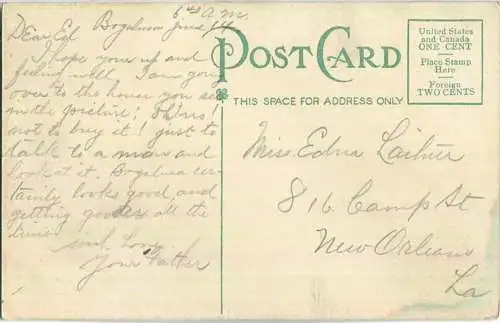 6 45 A.M.
Dear Ed Bogalusa June 14
I hope your up and
feeling well, I am going
over to the house you see
in the picture;
not to buy it! just to
talk to a man and
look at it. Bogalusa cer-
tainly looks good and
getting gooder all the
time
Your Father
POST CARD
THIS SPACE FOR ADDRESS ONLY
United States
and Canada
ONE CENT
Place Stamp
Here
Foreign
TWO CENTS
Miss. Edna
816 Camp St
New Orleans
La